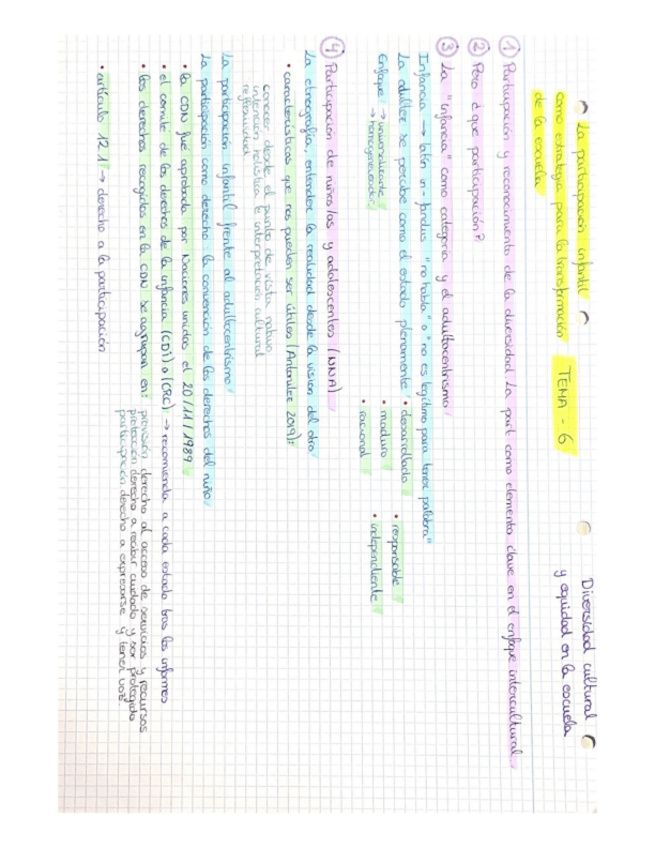 Diversidad cultural
y equidad en la escuela
TEMA - 6
La participación infantil
como estrategia para la transformación
de la escuela
① Participación y reconocimiento de la diversidad La part como elemento clave en el enfoque intercultural
② Pero ¿ que participación?
③ La "infancia" como categoría y el adultocentrismo
Infancia → latín in-fandus "no habla" o "no es legítimo para tener palabra"
La adultez se percibe como el estado plenamente • desarrollado • responsable
• maduro • independiente
• racional
Enfoque → universalizante
→ homogeneizador
④ Participación de niños/as y adolescentes (NNA)
La etnografía, entender la realidad desde la visión del otro
• características que nos pueden ser útiles (Antonlez 2019):
conocer desde el punto de vista nativo
intención holística e interpretación cultural
reflexividad
La participación infantil frente al adultocentrismo
La participación como derecho: la convención de los derechos del niño
• la CDN fue aprobada por Naciones unidas el 20/11/1989
• el comité de los derechos de la infancia (CDI) o (CRC) → recomienda a cada estado tras los informes
• los derechos recogidos en la CDN se agrupan en:
provisión derecho al acceso de servicios y recursos
protección derecho a recibir cuidado y ser protegido
participación derecho a expresarse y tener voz
• artículo 12.1 → derecho a la participación